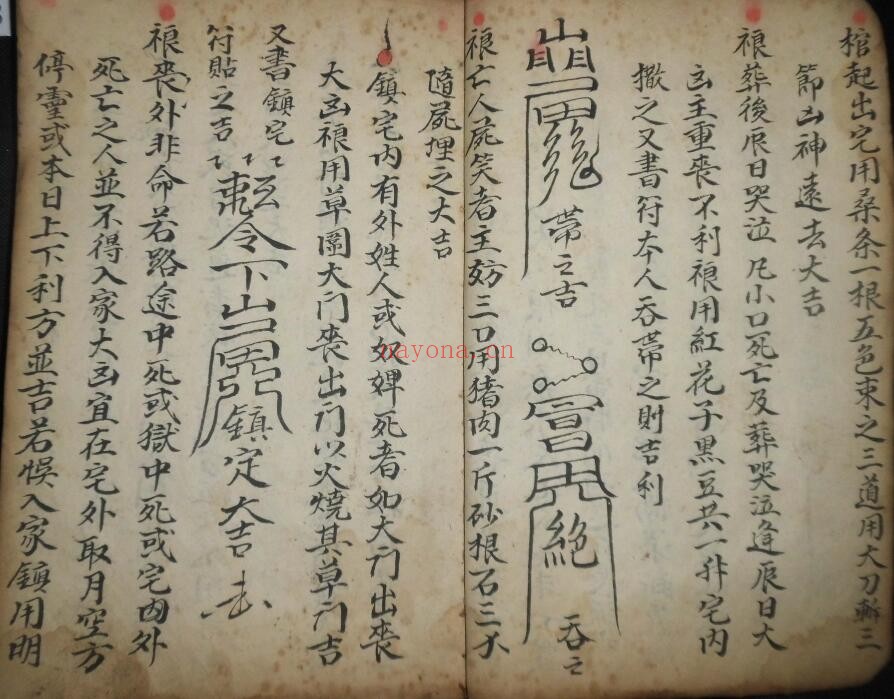 棺起出宅用桑条一根五色束之三道用大刀斬三
節凶神遠去大吉
禳葬後辰日哭泣凡小口死亡及葬哭泣逢辰日大
凶主重喪不利禳用紅花子黑豆共一升宅内
撒之又書符本人吞帶之則吉利
帶之吉
絕
吞之
禳亡人屍笑者主妨三口用猪肉一斤砂根石三
隨屍埋之大吉
鎮宅内有外姓人或奴婢死者如大门出喪
大凶禳用草圍大门喪出门以火燒其草门吉
又書鎮宅
符貼之吉
令下
鎮定大吉
禳喪外非命若路途中死或獄中死或宅内外
死亡之人並不得入家大凶宜在宅外取月空方
停靈或本日上下利方並吉若悮入家鎮用明
nayona.cn